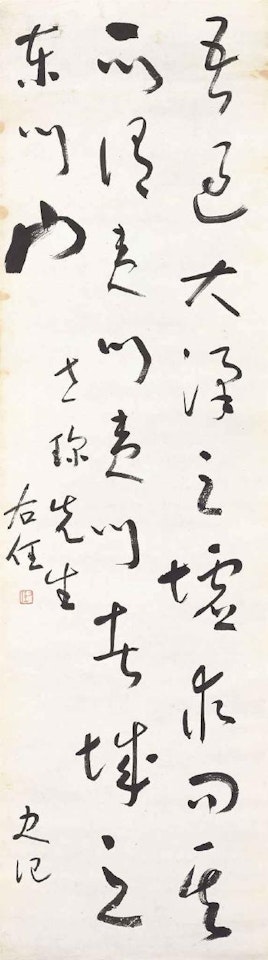 吾過大梁之墟求問其
所謂夷門夷門者城之
東門也
史記
先生
右任